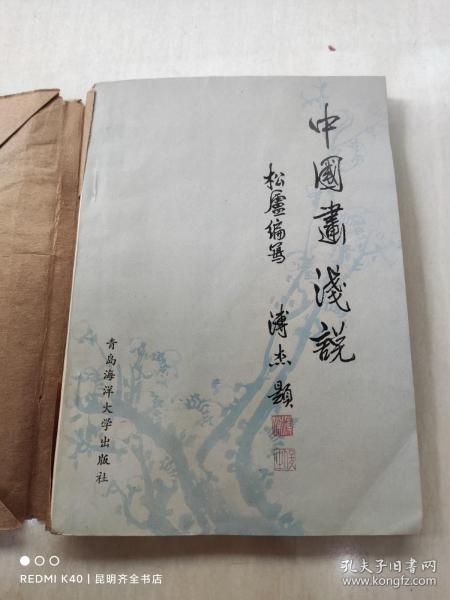 中國畫淺説
松廬编写
溥杰題
青岛海洋大学出版社
REDMI K40 | 昆明齐全书店
孔夫子旧书网
www.kongfz.com